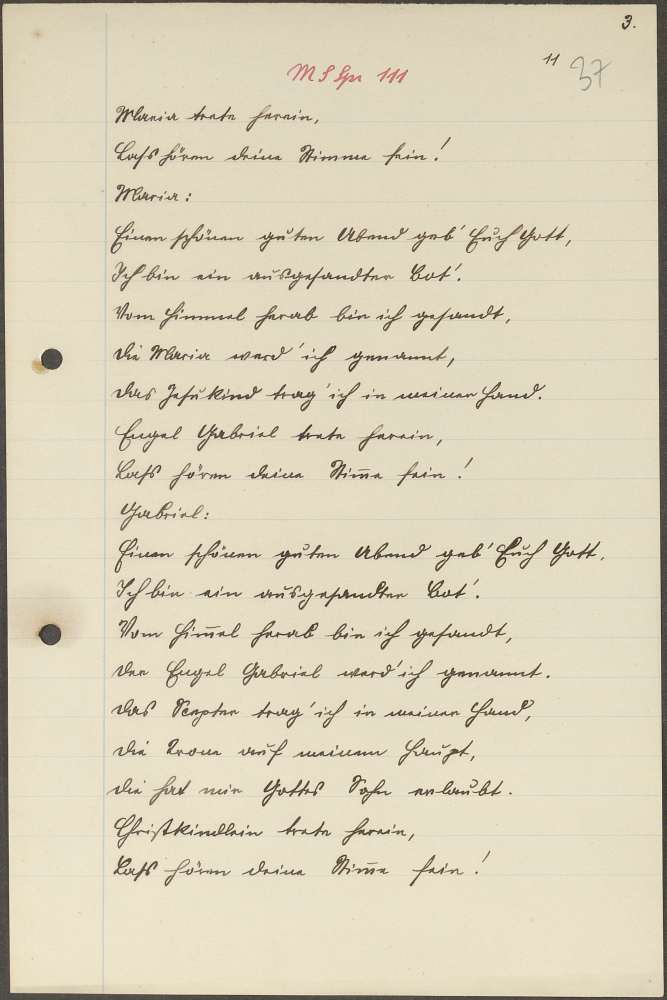 3.
11 37
MS Spr 111
Maria trete herein,
Lass hören deine Stimme fein!
Maria:
Einen schönen guten Abend geb' Euch Gott,
Ich bin ein ausgesandter Bot'.
Vom Himmel herab bin ich gesandt,
die Maria werd' ich genannt,
das Jesukind trag' ich in meiner Hand.
Engel Gabriel trete herein,
Lass hören deine Stim̅e fein!
Gabriel:
Einen schönen guten Abend geb' Euch Gott,
Ich bin ein ausgesandter Bot'.
Vom Him̅el herab bin ich gesandt,
der Engel Gabriel werd' ich genannt.
das Scepter trag' ich in meiner Hand,
die Krone auf meinem Haupt,
die hat mir Gottes Sohn erlaubt.
Christkindlein trete herein,
Lass hören deine Stim̅e fein!